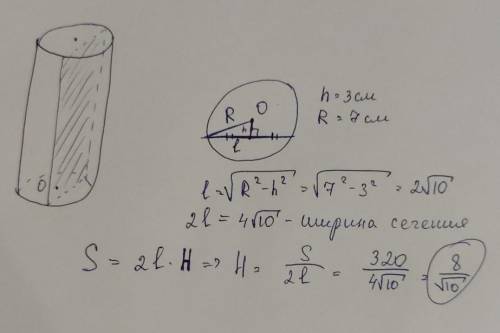 O
R
O
h
l
h = 3 см
R = 7 см
l = √(R² - h²) = √(7² - 3²) = 2√10
2l = 4√10 - ширина сечения
S = 2l · H => H = S/2l = 320/4√10 = 8/√10